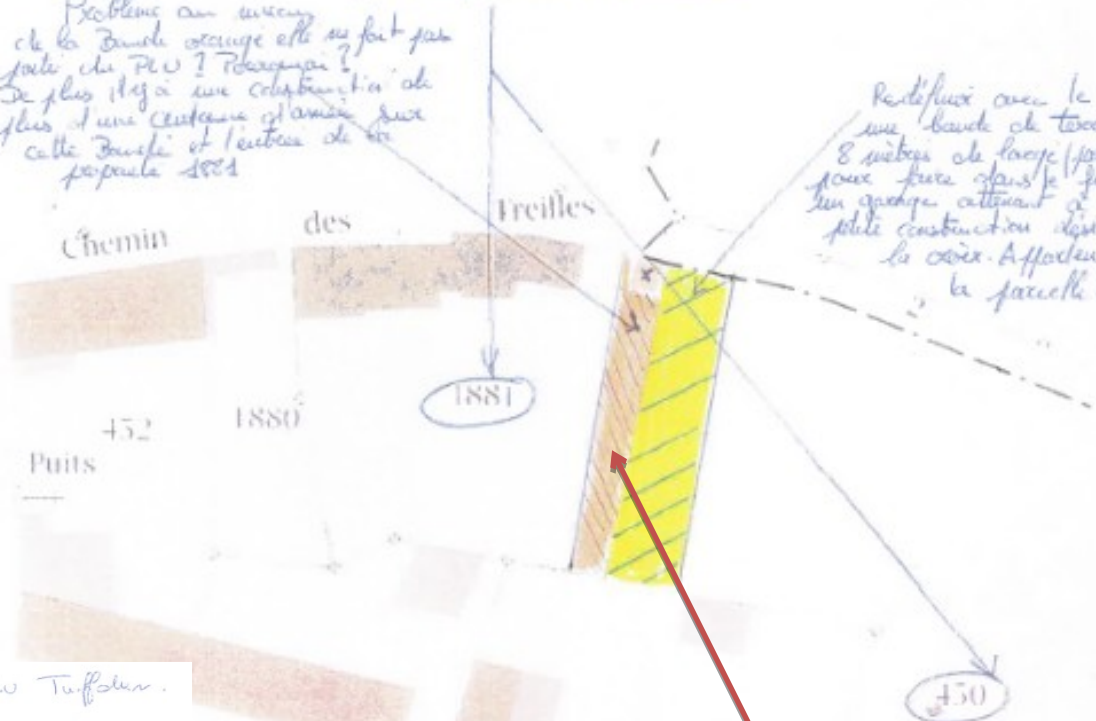 Problème au niveau
de la Bande orange elle ne fait pas
partie du PLU ? Pourquoi ?
De plus il y a une construction de
plus d'une centaine d'année sur
cette Bande et l'entrée de la
propriété 1881
Redéfinir avec le
une bande de
8 mètres de large
pour faire dans le
un garage attenant à
petite construction
la croix. Appartenu
la parcelle
Chemin des Treilles
1881
1880
452
Puits
450
Tuffolun.